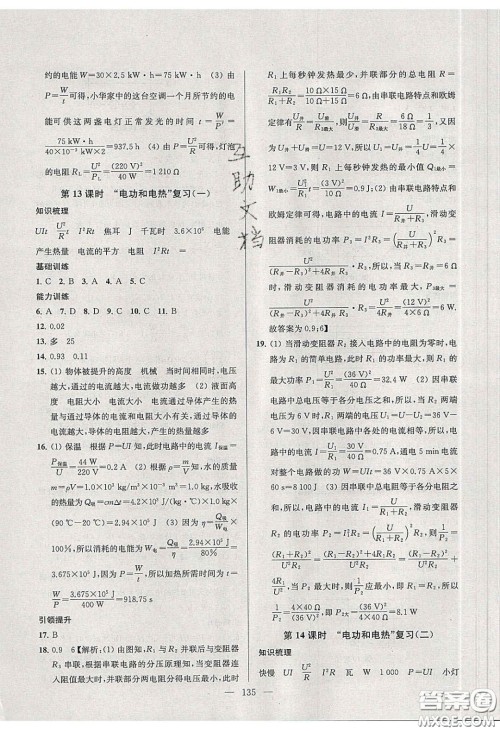 约的电能 W=30×2.5 kW·h=75 kW·h (3) 由
P=W/t 可得,小华家中的这台空调一个月所节约的电
能可供这两盏电灯正常发光的时间 t=W/P=
75 kW·h/(40×10⁻³ kW×2)=937.5 h (4) 由 P=U²/R 可得,灯泡
的电阻 R_L=U²/P_L=(220 V)²/40 W=1 210 Ω
第13课时 “电功和电热”复习(一)
知识梳理
UIt U²/R t I²Rt 焦耳 J 千瓦时 3.6×10⁶ 电能
电流产生热量 电流的平方 电阻 I²Rt =
基础训练
1. C 2. B 3. A 4. C 5. A
能力训练
6. A 7. D 8. D 9. D 10. C 11. B
12. 0.02
13. 多 25
14. 0.93 0.11
15. (1) 物体被提升的高度 机械 当时间相同时,电压
越大,通过的电流越大,电流做功越多 (2) 液面的高
度差 电阻大小 电流大小 (3) 电流通过导体产生
的热量与通过导体的电流和电阻大小有关 电流产生
热量与通过导体的电流不成正比
16. (1) 保温 根据 P=UI 知,此时电路中的电流 I保温=
P保温/U=44 W/220 V=0.2 A (2) 根据 ρ=m/V 知,水的质量
m=ρV=1.0×10³ kg/m³×10⁻³ m³=1 kg,水吸收的热
量为 Q吸=cmΔt=4.2×10³ J/(kg·℃)×1 kg×
(90 ℃-20 ℃)=2.94×10⁵ J (3) 因为 η=Q吸/W电×
100%,所以消耗的电能为 W电=Q吸/η=2.94×10⁵ J/80%=
3.675×10⁵ J,因为 P=W/t,所以加热所需时间 t=W/P=
3.675×10⁵ J/400 W=918.75 s
引领提升
17. B
18. 0.9 6 【解析】(1) 由图知,R₁与R₂并联后与变阻器
R₃串联,根据串联电路中的分压原理知,当变阻器接
入阻值最大时,并联部分两电阻分得电压最小,此时
R₁上每秒钟发热最少,并联部分的总电阻 R并=
R₁R₂/(R₁+R₂)=10 Ω×15 Ω/(10 Ω+15 Ω)=6 Ω,由串联电路特点和欧姆
定律有 U并/U滑=R并/R3最大=6 Ω/12 Ω=1/2,所以 U并=1/3 U=
1/3×9 V=3 V,R₁上每秒钟发热的最小值 Q最小=
U并²/R₁ t=(3 V)²/10 Ω×1 s=0.9 J。(2) 根据串联电路特点和
欧姆定律可得,电路中的电流 I=U/(R并+R₃),滑动变
阻器消耗的电功率 P₃=I²R₃=(U/(R并+R₃))²×R₃=
U²/((R₃-R并)²/R₃+4R并),所以,当 R₃=R并=6 Ω 时,滑动变
阻器消耗的电功率 P3最大=U²/4R并=(12 V)²/(4×6 Ω)=6 W。
故答案为 0.9;6
19. (1) 当滑动变阻器 R₂ 接入电路中的电阻为零时,电
路为 R₁ 的简单电路,此时电路中的电流最大,R₁ 的
最大功率 P1最大=U²/R₁=(36 V)²/40 Ω=32.4 W (2) 因串联
电路中总电压等于各分电压之和,所以当 R₂ 两端电
压 U₂=6 V 时,R₁ 两端的电压 U₁=U-U₂=36 V-
6 V=30 V,因串联电路中各处的电流相等,所以,电
路中的电流 I=U₁/R₁=30 V/40 Ω=0.75 A,通电 5 min 电
流对整个电路做的功 W=UIt=36 V×0.75 A×5×
60 s=8 100 J (3) 因串联电路中总电阻等于各分电阻之
和,所以,电路中的电流 I₁=U/(R₁+R₂),滑动变阻器
R₂ 的电功率 P₂=I₁²R₂=(U/(R₁+R₂))²R₂=
U²/((R₁+R₂)²/R₂)=U²/((R₁-R₂)²+4R₁R₂)/R₂=U²/((R₁-R₂)²/R₂+4R₁),当 R₂=
R₁ 时,P₂ 最大,为了区分,用 P大 表示,则 P大=
U²/4R₁=(36 V)²/(4×40 Ω)=8.1 W
第14课时 “电功和电热”复习(二)
知识梳理
快慢 UI U²/R I²R 瓦 W 1 000 P=UI 小灯
135
互助文档
答案圈
MXQE.COM